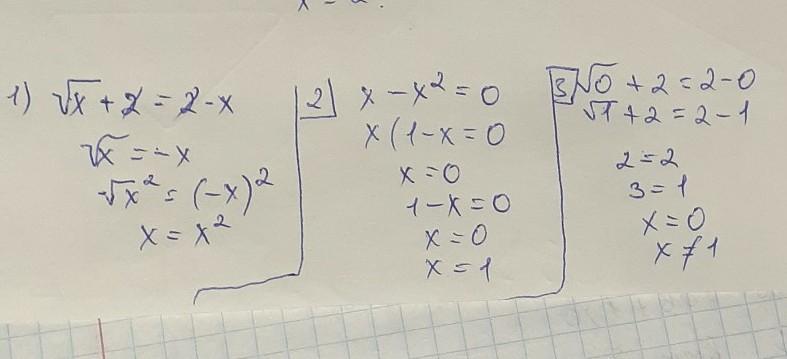 1) √x + 2 = 2 - x
√x = -x
√x² = (-x)²
x = x²
2) x - x² = 0
x(1 - x = 0
x = 0
1 - x = 0
x = 0
x = 1
3) √0 + 2 = 2 - 0
√1 + 2 = 2 - 1
2 = 2
3 = 1
x = 0
x ≠ 1